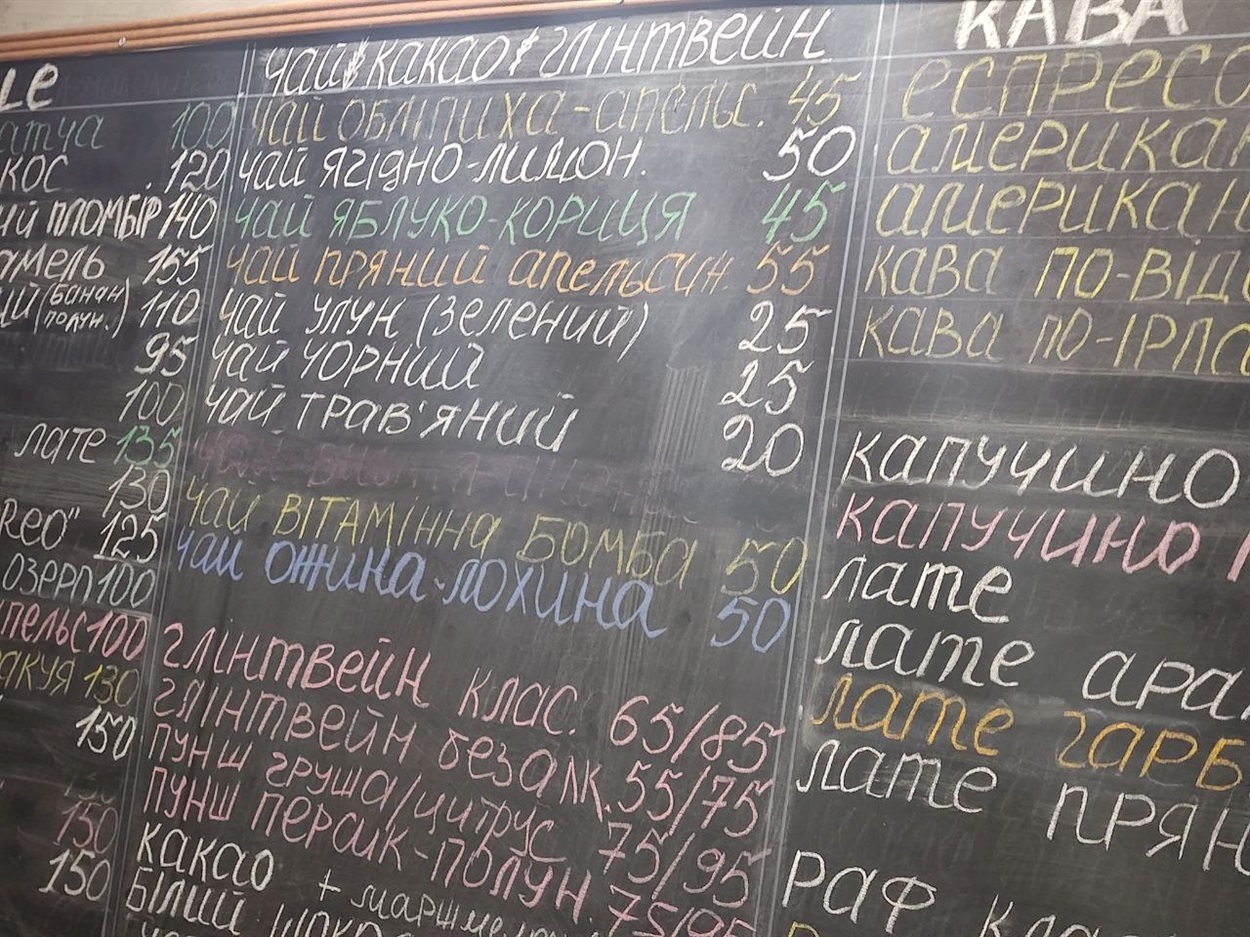 le
атча 100
кос 120
ий пломбір 140
амель 155
ий (банан) (полун.) 110
95
100
лате 135
130
Reo" 125
озеро 100
пельс 100
акуя 130
150
150
150
чай какао глінтвейн
чай обліпиха-апельс. 45
чай ягідно-лимон. 50
чай яблуко-кориця 45
чай пряний апельсин. 55
чай улун (зелений) 25
чай чорний 25
чай трав'яний 20
чай вітамінна бомба 50
чай ожина-лохина 50
глінтвейн клас. 65/85
глінтвейн безалк. 55/75
пунш груша/цитрус 75/95
пунш персик-полун. 75/95
какао
+ маршмелоу
білий
кава
еспресо
американ
американ
кава по-від
кава по-ірла
капучино
капучино
лате
лате ара
лате гарб
лате прян
раф кла